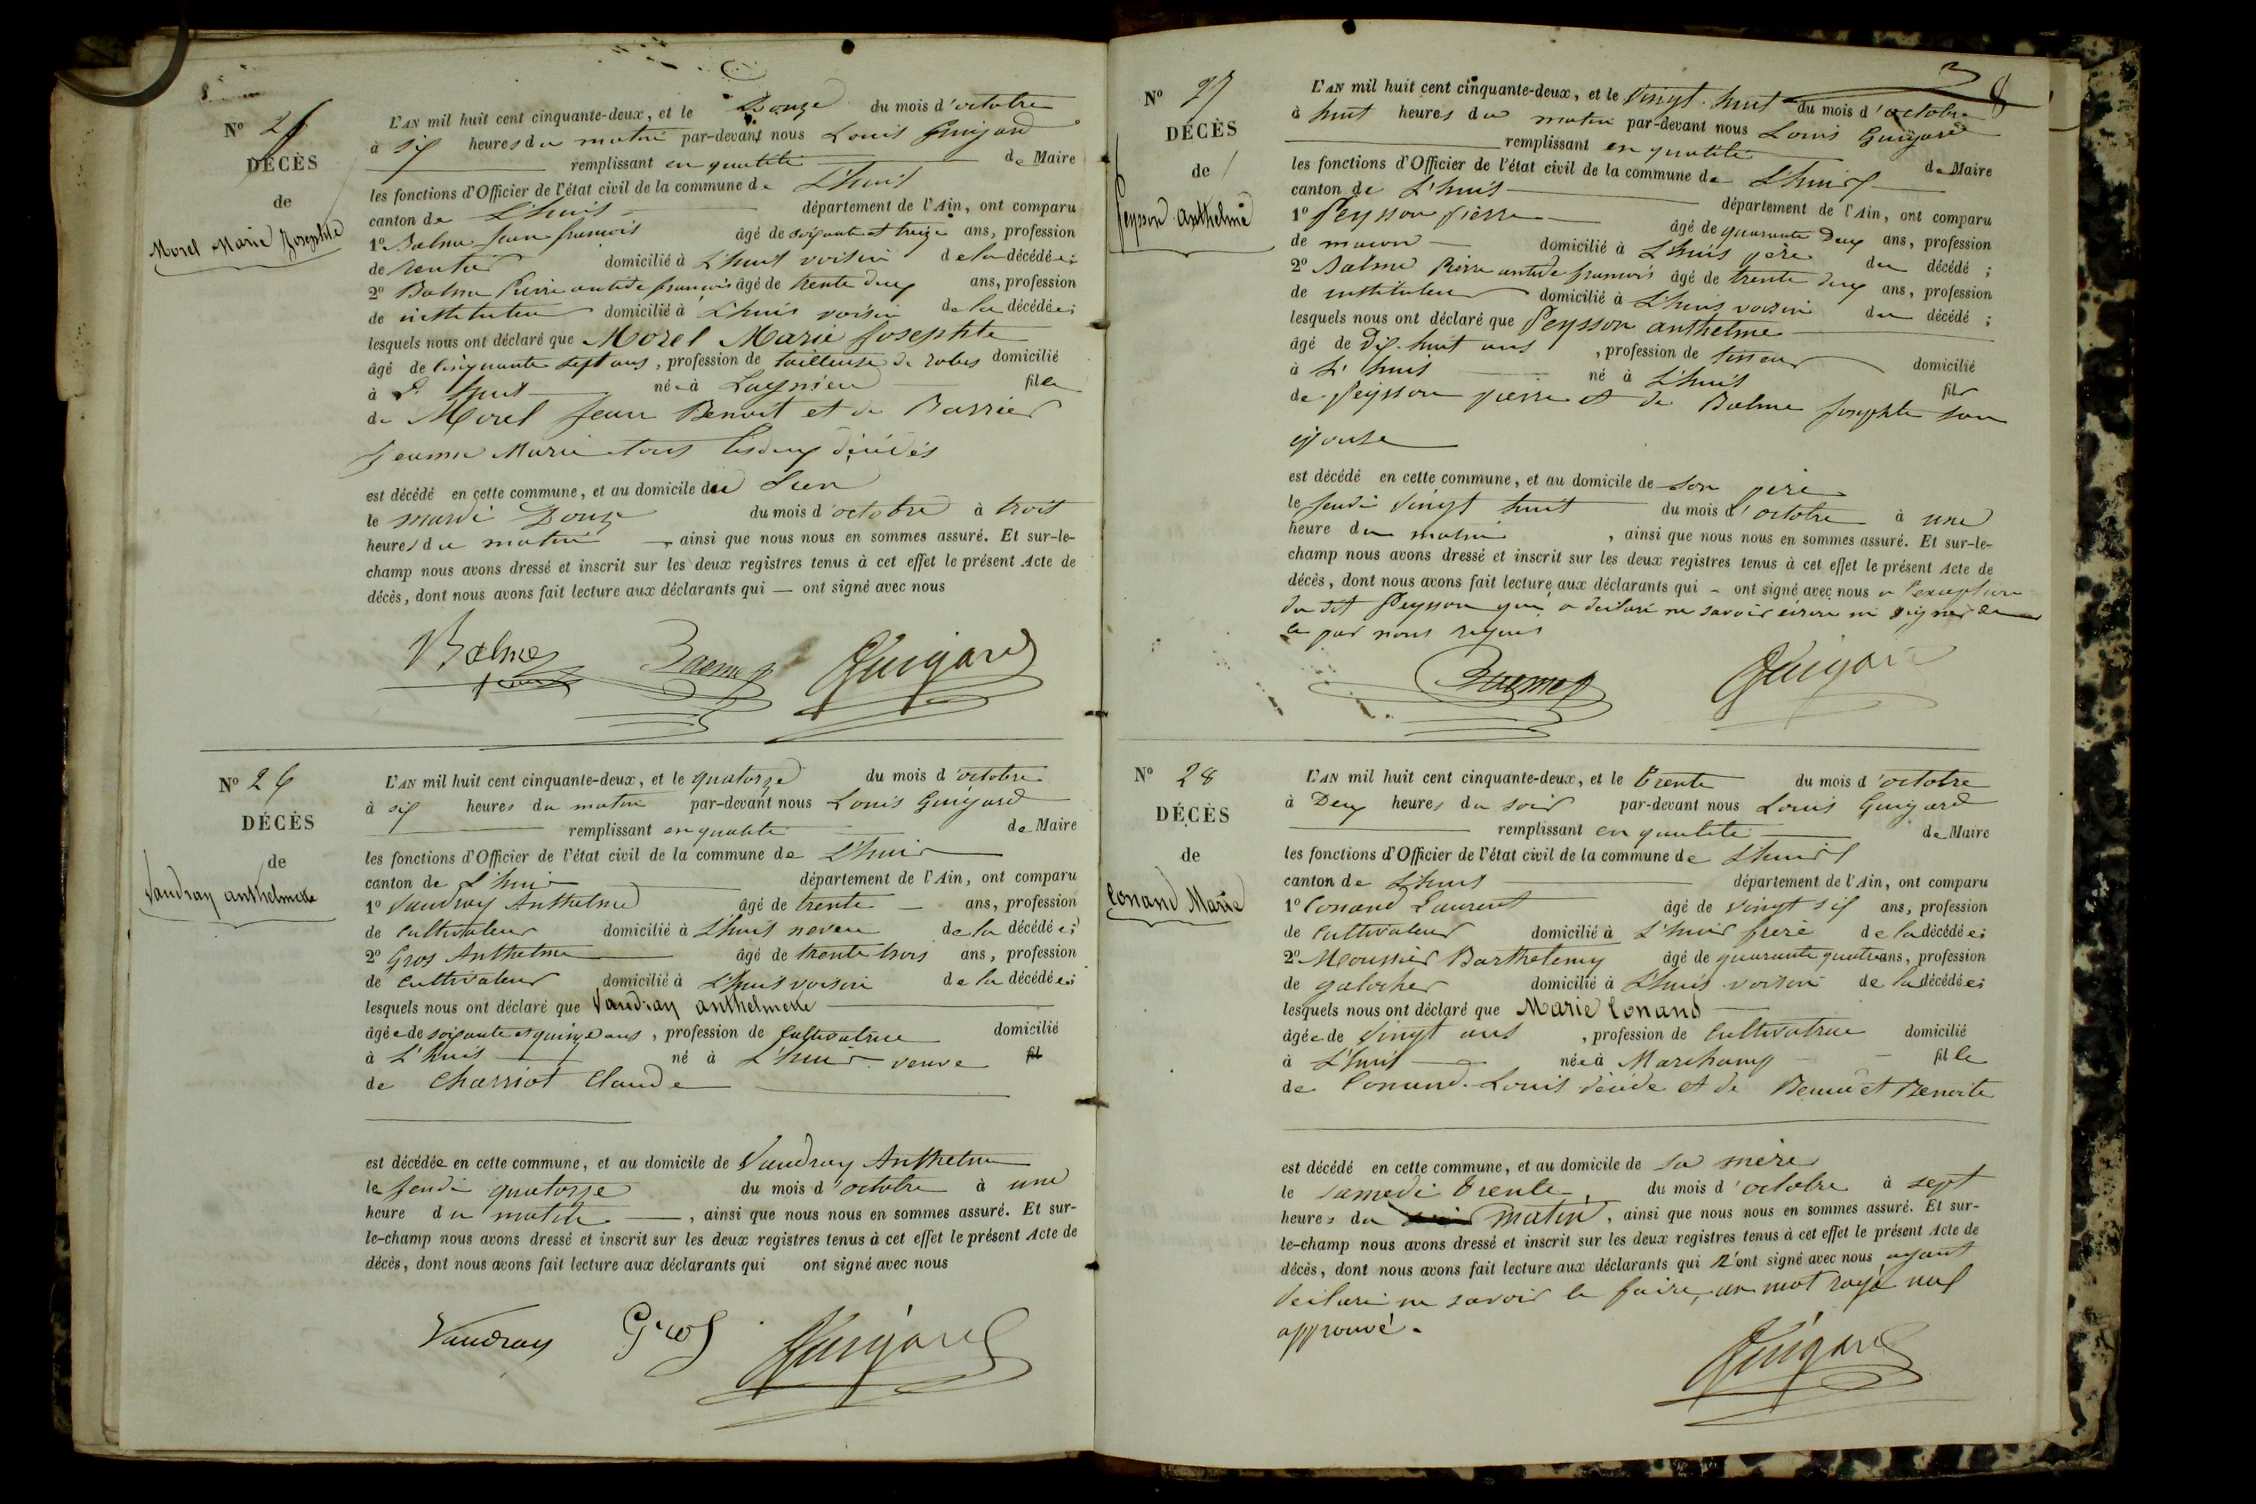 Nº 25
DÉCÈS
de
Morel Marie Josephte
L'AN mil huit cent cinquante-deux, et le Douze du mois d'octobre
à six heures du matin par-devant nous Louis Guigard
remplissant en qualité de Maire
les fonctions d'Officier de l'état civil de la commune de L'huis
canton de L'huis département de l'Ain, ont comparu
1º Balme Jean françois âgé de soixante et treize ans, profession
de rentier domicilié à L'huis voisin de la décédée;
2º Balme Pierre antide françois âgé de trente deux ans, profession
de instituteur domicilié à L'huis voisin de la décédée;
lesquels nous ont déclaré que Morel Marie Josephte
âgé de Cinquante sept ans, profession de tailleuse de robes domicilié
à L'huis née à Lagnieu fille
de Morel Jean Benoit et de Barrier
Jeanne Marie tous les deux décédés
est décédé en cette commune, et au domicile du Sien
le mardi Douze du mois d'octobre à trois
heures du matin, ainsi que nous nous en sommes assuré. Et sur-le-
champ nous avons dressé et inscrit sur les deux registres tenus à cet effet le présent Acte de
décès, dont nous avons fait lecture aux déclarants qui — ont signé avec nous
Balme Balme Guigard
Nº 26
DÉCÈS
de
Vaudray anthelmette
L'AN mil huit cent cinquante-deux, et le quatorze du mois d'octobre
à six heures du matin par-devant nous Louis Guigard
remplissant en qualité de Maire
les fonctions d'Officier de l'état civil de la commune de L'huis
canton de L'huis département de l'Ain, ont comparu
1º Vaudray Anthelme âgé de trente ans, profession
de Cultivateur domicilié à L'huis neveu de la décédée;
2º Gros Anthelme âgé de trente trois ans, profession
de Cultivateur domicilié à L'huis voisin de la décédée;
lesquels nous ont déclaré que Vaudray anthelmette
âgée de soixante et quinze ans, profession de Cultivatrice domicilié
à L'huis né à L'huis veuve fil
de Charriot Claude
est décédée en cette commune, et au domicile de Vaudray Anthelme
le Jeudi quatorze du mois d'octobre à une
heure du matin, ainsi que nous nous en sommes assuré. Et sur-
le-champ nous avons dressé et inscrit sur les deux registres tenus à cet effet le présent Acte de
décès, dont nous avons fait lecture aux déclarants qui ont signé avec nous
Vaudray Gros Guigard
8
Nº 27
DÉCÈS
de
Peysson anthelme
L'AN mil huit cent cinquante-deux, et le Vingt huit du mois d'octobre
à huit heures du matin par-devant nous Louis Guigard
remplissant en qualité de Maire
les fonctions d'Officier de l'état civil de la commune de L'huis
canton de L'huis département de l'Ain, ont comparu
1º Peysson Pierre âgé de quarante Deux ans, profession
de maçon domicilié à L'huis père du décédé;
2º Balme Pierre antide françois âgé de trente deux ans, profession
de instituteur domicilié à L'huis voisin du décédé;
lesquels nous ont déclaré que Peysson anthelme
âgé de Dix-huit ans, profession de tisseur domicilié
à L'huis né à L'huis fils
de Peysson pierre et de Balme Josephte son
épouse
est décédé en cette commune, et au domicile de son père
le Jeudi Vingt huit du mois d'octobre à une
heure du matin, ainsi que nous nous en sommes assuré. Et sur-le-
champ nous avons dressé et inscrit sur les deux registres tenus à cet effet le présent Acte de
décès, dont nous avons fait lecture aux déclarants qui — ont signé avec nous a l'exception
du dit Peysson qui a déclaré ne savoir écrire ni signer de
ce par nous requis
Balme Guigard
Nº 28
DÉCÈS
de
Conand Marie
L'AN mil huit cent cinquante-deux, et le trente du mois d'octobre
à Deux heures du soir par-devant nous Louis Guigard
remplissant en qualité de Maire
les fonctions d'Officier de l'état civil de la commune de L'huis
canton de L'huis département de l'Ain, ont comparu
1º Conand Laurent âgé de vingt six ans, profession
de Cultivateur domicilié à L'huis frère de la décédée;
2º Meunier Barthelemy âgé de quarante quatre ans, profession
de galocher domicilié à L'huis voisin de la décédée;
lesquels nous ont déclaré que Marie Conand
âgée de Vingt ans, profession de Cultivatrice domicilié
à L'huis née à Marchamp fille
de Conand Louis décédé et de Benoite
est décédé en cette commune, et au domicile de sa mère
le samedi trente, du mois d'octobre à sept
heures du matin, ainsi que nous nous en sommes assuré. Et sur-
le-champ nous avons dressé et inscrit sur les deux registres tenus à cet effet le présent Acte de
décès, dont nous avons fait lecture aux déclarants qui n'ont signé avec nous ayant
déclaré ne savoir le faire, un mot rayé nul
approuvé.
Guigard